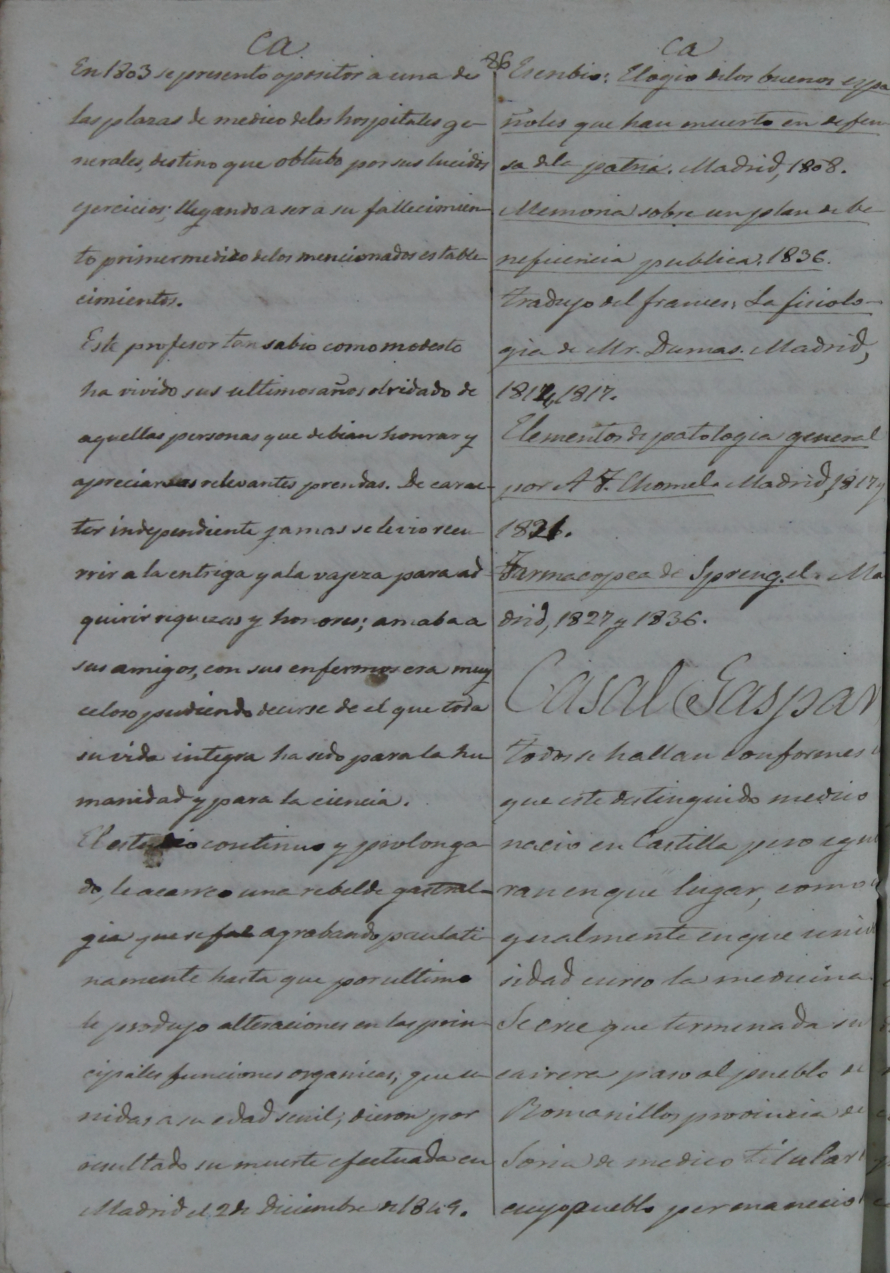 Ca
En 1803 se presentó opositor a una de
las plazas de medico delos hospitales ge-
nerales, destino que obtubo por sus lucidos
ejercicios; llegando a ser a su fallecimien-
to primer medico delos mencionados estable-
cimientos.
Este profesor tan sabio como modesto
ha vivido sus ultimos años olvidado de
aquellas personas que debian honrar y
apreciar sus relevantes prendas. De carac-
ter independiente jamas se le vio recu-
rrir a la entriga y ala vajeza para ad-
quirir riquezas y honores; amaba a
sus amigos, con sus enfermos era muy
celoso pudiendo decirse de el que toda
su vida integra ha sido para la hu-
manidad y para la ciencia.
El estudio continuo y prolonga-
do, le acarreo una rebelde gastral-
gia que se fue agrabando paulati-
namente hasta que por ultimo
le produjo alteraciones en las prin-
cipales funciones organicas, que u-
nidas a su edad senil; dieron por
resultado su muerte efectuada en
Madrid el 2 de Diciembre de 1849.
86
Ca
Escribio: Elogio delos buenos espa
ñoles que han muerto en defen-
sa dela patria. Madrid, 1808.
Memoria sobre un plan de be-
neficencia publica. 1836.
Tradujo del frances: La fisiolo-
gia de Mr. Dumas. Madrid,
1817.
Elementos de patologia general
por A F. Chomel. Madrid, 1817 y
1821.
Farmacopea de Sprengel. Ma
drid, 1827 y 1836.
Casal Gaspar
Todos se hallan conformes
que este distinguido medico
nacio en Castilla pero ygno
ran en que lugar, como
ygualmente en que univ
sidad curso la medicina.
Se cree que terminada su
carrera paso al pueblo de
Romanillos provincia de
Soria de medico titular
cuyo pueblo permanecio